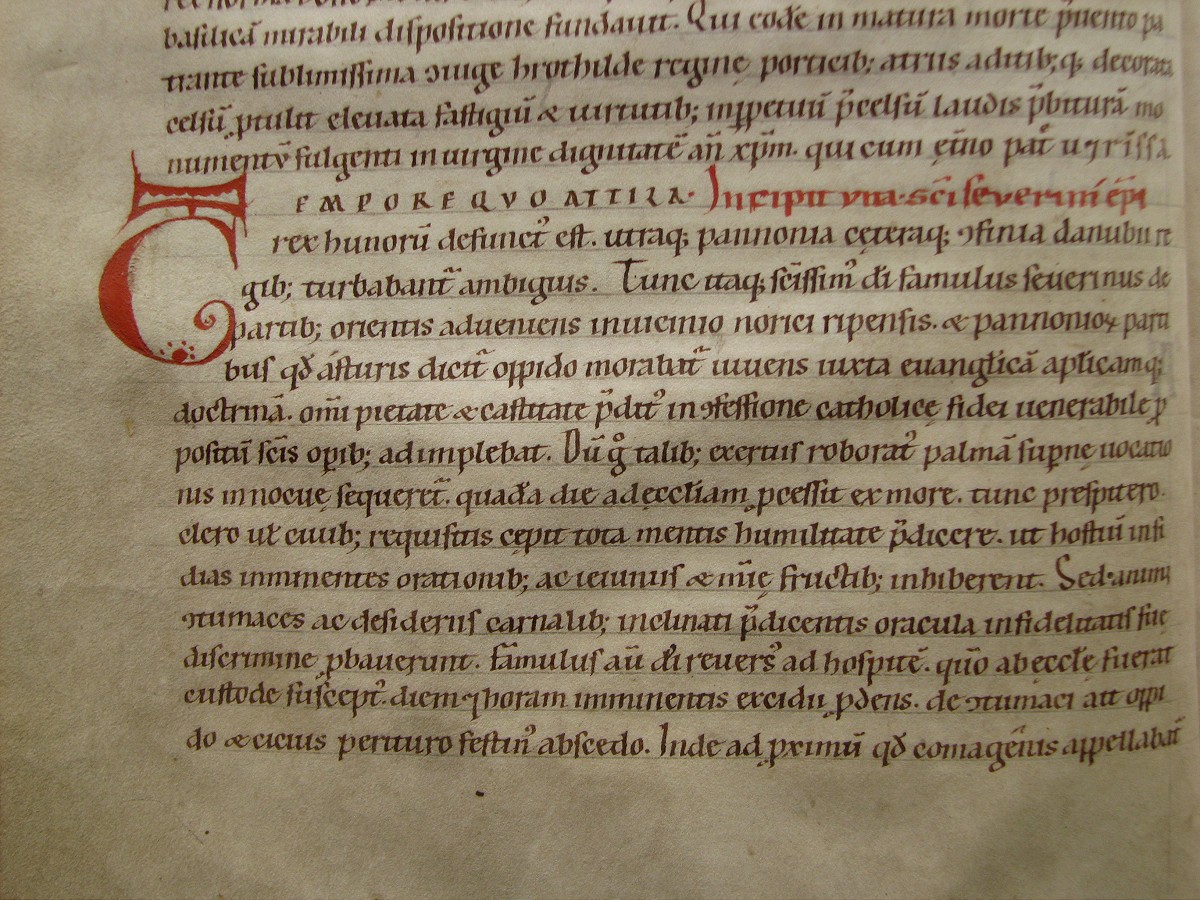 basilicā mirabili dispositione fundauit. Qui eodē in matura morte p̄uento pa
trante sublimissima ꝯiuge hrothilde regine porticib; atriis aditib;q; decorata
celsū ꝓtulit eleuata fastigiū & uirtutib; inꝑpetuū p̄celsū laudis p̄biturā mo
numentū fulgenti in uirgine dignitatē an̄ xp̄m. qui cum ęt̄no pat̄
TEMPORE QVO ATTILA. Incipit vita sc̄i severini ep̄i
rex hunorū defunct᾿ est. utraq; pannonia cęteraq; ꝯfinia danubii re
gib; turbabant᷑ ambiguis. Tunc itaq; sc̄issim᾿ dı̄ famulus seuerinus de
partib; orientis adueniens inuicinio norici ripensis. & pannonioꝝ parti
bus qđ ásturis dicit᷑ oppido morabat᷑ uiuens iuxta euanglicā aplicamq;
doctrinā. om̄i pietate & castitate p̄dit᾿ in ꝯfessione catholicę fidei uenerabile ꝓ
positū sc̄is oꝑib; adimplebat. Dū g̊ talib; exertus roborat᾿ palmā suꝑnę uocatio
nis innocuę sequeret᷑. quađa die ad ęccl̄iam ꝓcessit ex more. tunc prespitero.
clero ul̄ ciuib; requisitis cępit tota mentis humilitate p̄dicere. ut hostiū insi
dias imminentes orationib; ac ieiuniis & m̄ię fructib; inhiberent. Sed animi
ꝯtumaces ac desideriis carnalib; inclinati p̄dicentis oracula infidelitatis suę
discrimine ꝓbauerunt. Famulus aū dı̄ reuers᾿ ad hospitē. quo ab eccl̄e fuerat
custode suscept᾿. diem ⁊ horam imminentis excidii ꝓdens. de ꝯtumaci ait oppi
do & cicius perituro festin᾿ abscedo. Inde ad ꝓximū qđ comagenis appellabat᷑